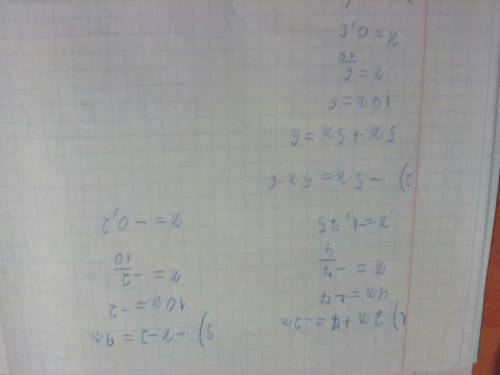 1) 2x+7=-2x
4x=-7
x=-7/4
x=-1,75
2) -5x=5x-6
5x+5x=6
10x=6
x=6/10
x=0,6
3) -x-2=9x
10x=-2
x=-2/10
x=-0,2